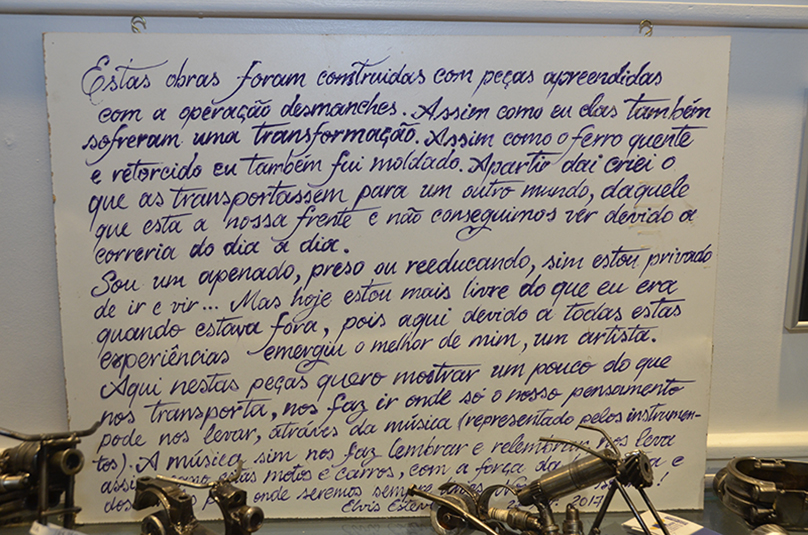 Estas obras foram construidas com peças apreendidas
com a operação desmanches. Assim como eu elas também
sofreram uma transformação. Assim como o ferro quente
e retorcido eu também fui moldado. Apartir dai criei o
que as transportassem para um outro mundo, daquele
que esta a nossa frente e não conseguimos ver devido a
correria do dia a dia.
Sou um apenado, preso ou reeducando, sim estou privado
de ir e vir... Mas hoje estou mais livre do que eu era
quando estava fora, pois aqui devido a todas estas
experiências emergiu o melhor de mim, um artista.
Aqui nestas peças quero mostrar um pouco do que
nos transporta, nos faz ir onde só o nosso pensamento
pode nos levar, átráves da música (representado pelos instrumen-
tos). A música sim nos faz lembrar e relembrar, nos leva
assim como estas motos e carros, com a força da e
dos onde seremos sempre !
Elvis 2017